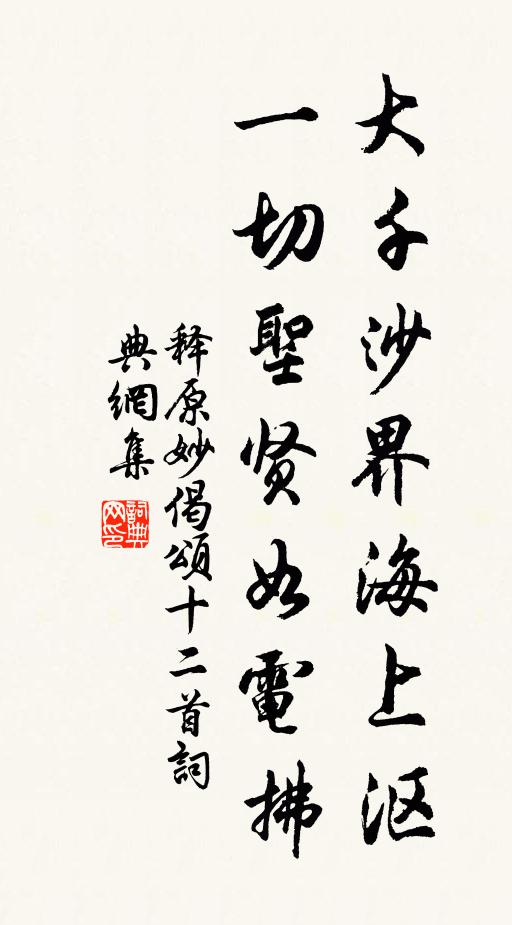 大千沙界海上沤
一切聖贤如電拂
释原妙偈頌十二首詞
典網集
詞典网印